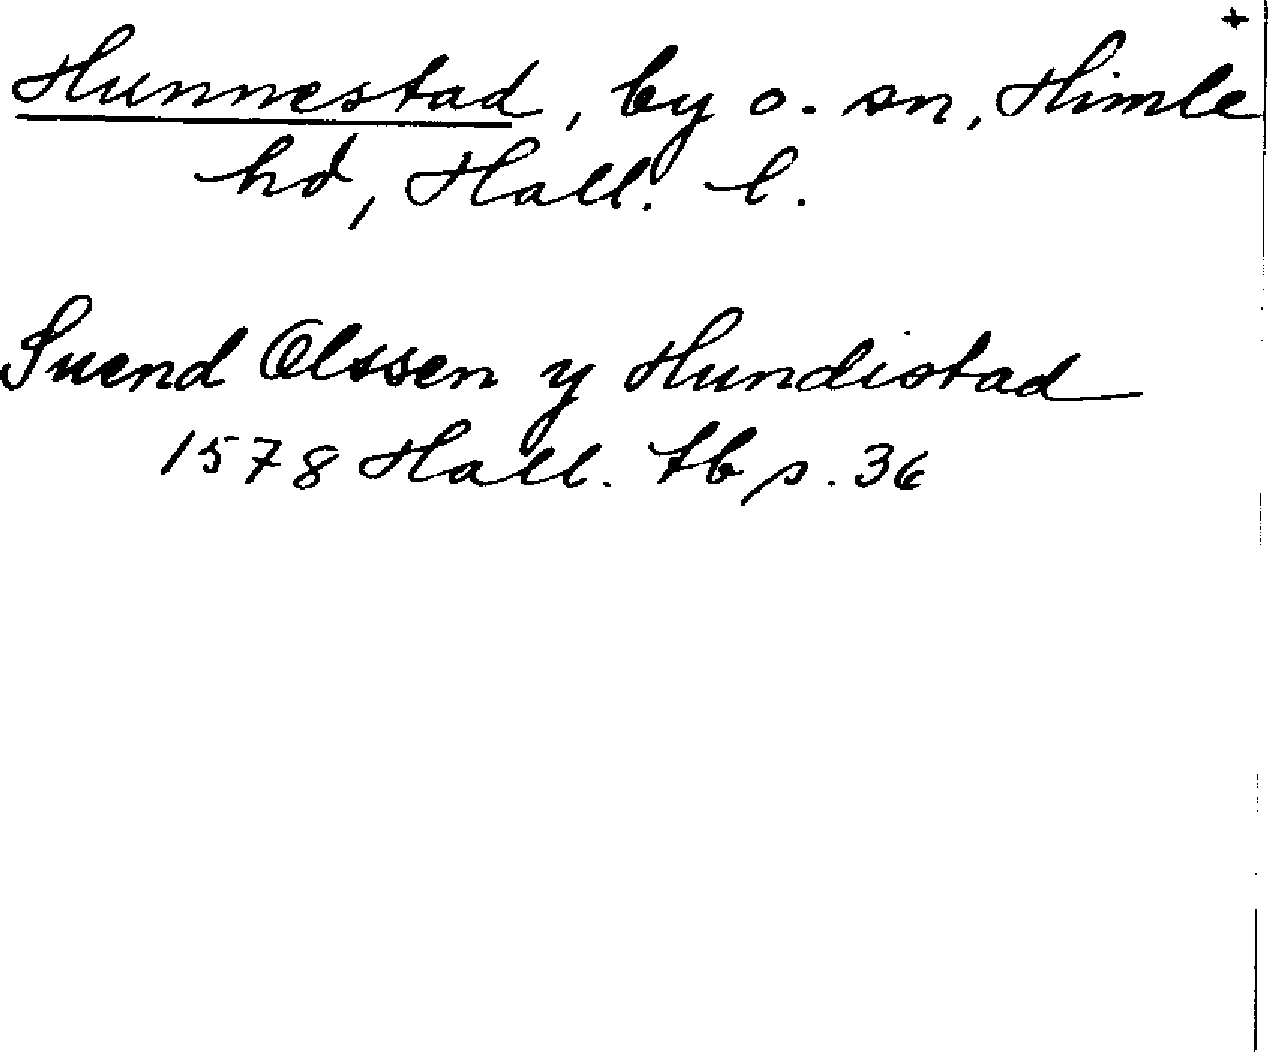 +
Hunnestad, by o. sn, Himle
hd, Hall. l.
Suend Olssen y Hundistad
1578 Hall. tb s. 36